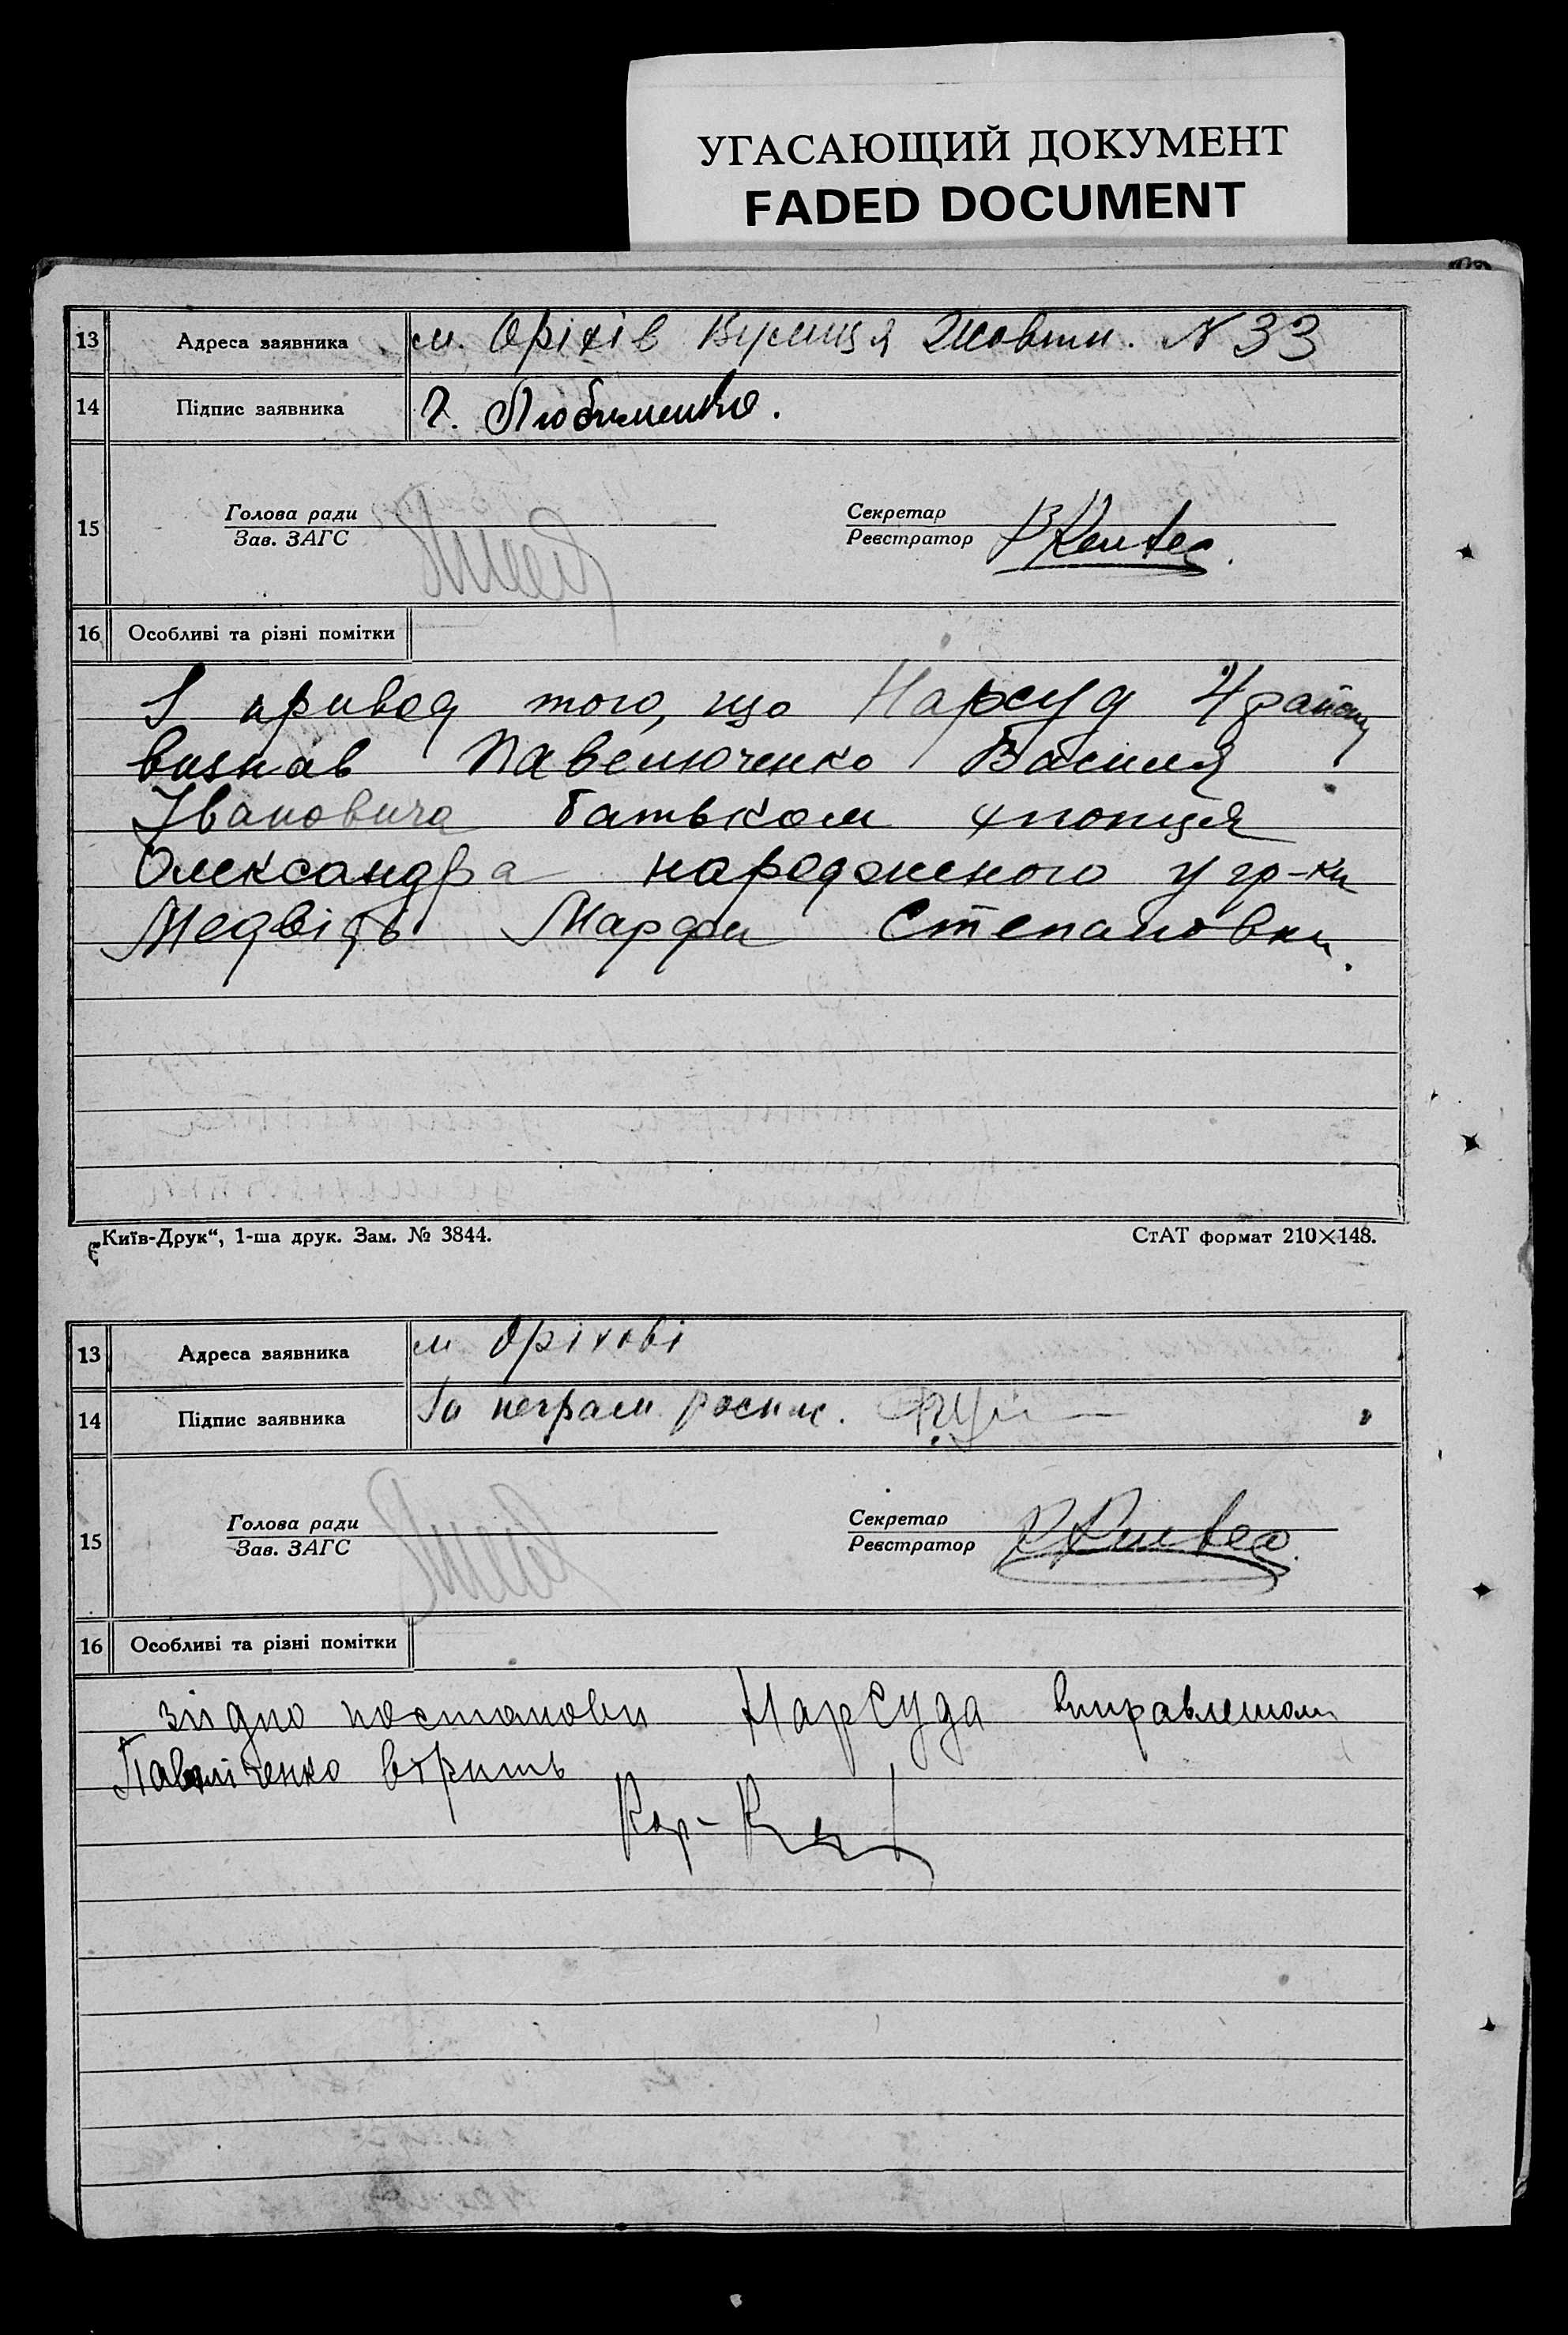 УГАСАЮЩИЙ ДОКУМЕНТ
FADED DOCUMENT
13 Адреса заявника м. Оріхів Вулиця Жовтн. № 33
14 Підпис заявника Г. Любименко.
15 Голова ради Секретар
Зав. ЗАГС Реєстратор
16 Особливі та різні помітки
З привод того, що Нарсуд 4 району
визнав Павелюченко Василя
Івановича батьком хлопця
Олександра народженого у гр-ки
Медвідь Марфи Степановни.
„Київ-Друк“, 1-ша друк. Зам. № 3844. СтАТ формат 210×148.
13 Адреса заявника м. Оріхові
14 Підпис заявника За неграм. роспис.
15 Голова ради Секретар
Зав. ЗАГС Реєстратор
16 Особливі та різні помітки
згідно постанови Нарсуда виправленому
вірить